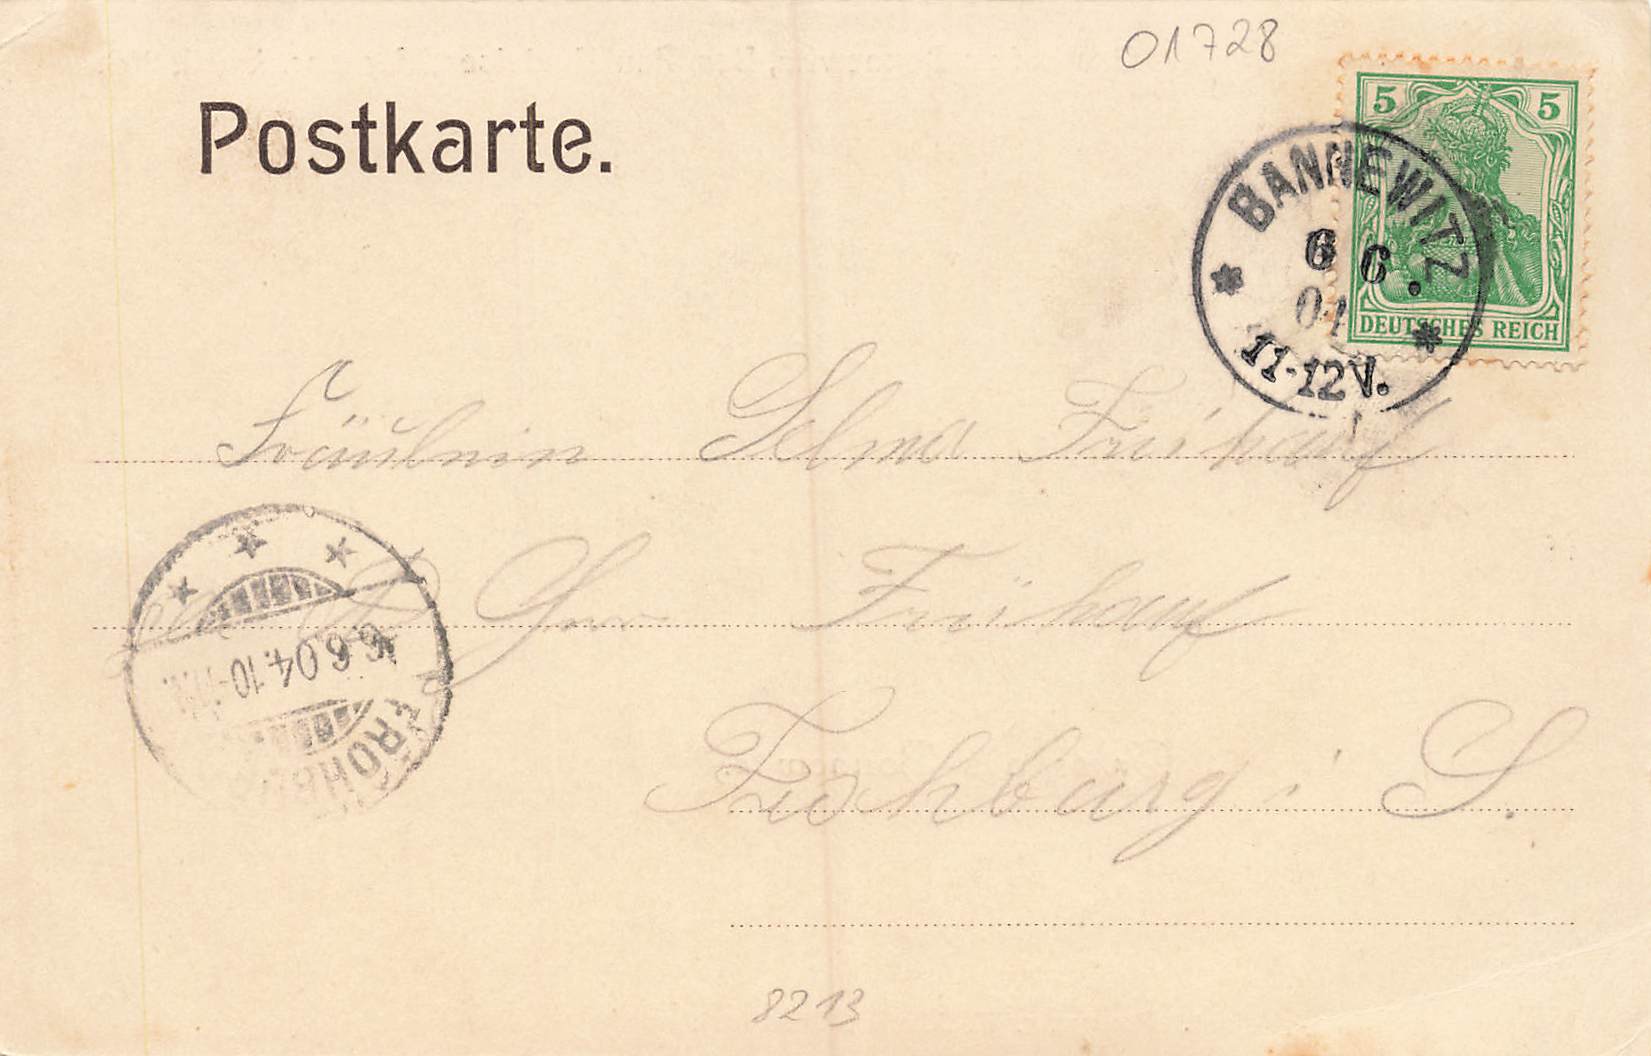 01728
Postkarte.
5 5
DEUTSCHES REICH
BANNEWITZ
6 6
04
11-12V.
Fräulein Selma Frühauf
Frühauf
6.6.04.10-11N.
FROHBURG
Frohburg i S.
8213